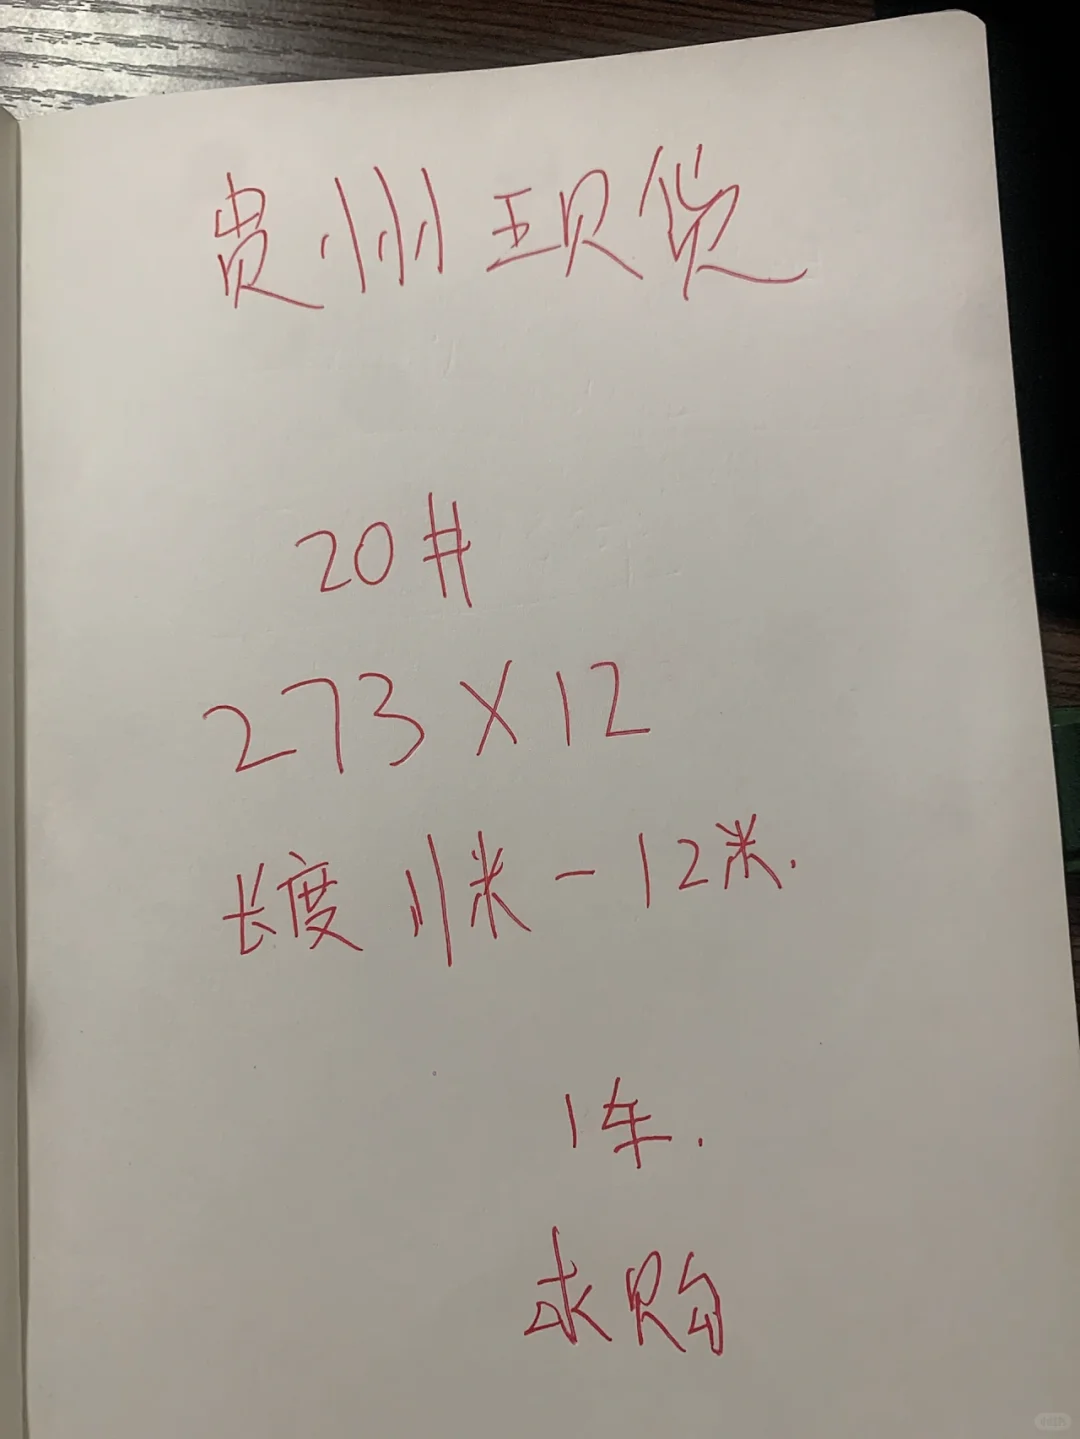 贵州现货
20#
273×12
长度 11米-12米.
1车.
求购